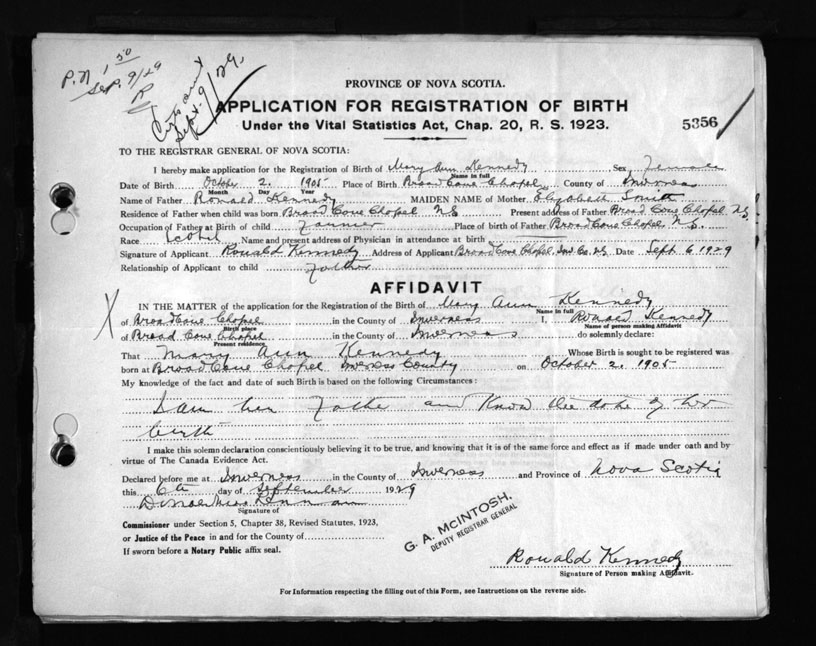 P.N 1.50
Sep. 9/29
Sept. 9/29
PROVINCE OF NOVA SCOTIA.
APPLICATION FOR REGISTRATION OF BIRTH
Under the Vital Statistics Act, Chap. 20, R. S. 1923.
5356
TO THE REGISTRAR GENERAL OF NOVA SCOTIA:
I hereby make application for the Registration of Birth of Mary Ann Kennedy Sex Female
Name in full
Date of Birth October 2. 1905 Place of Birth Broad Cove Chapel County of Inverness
Month Day Year
Name of Father Ronald Kennedy MAIDEN NAME of Mother Elizabeth Smith
Residence of Father when child was born Broad Cove Chapel N.S. Present address of Father Broad Cove Chapel N.S.
Occupation of Father at Birth of child Farmer Place of birth of Father Broad Cove Chapel, N.S.
Race Scotch Name and present address of Physician in attendance at birth
Signature of Applicant Ronald Kennedy Address of Applicant Broad Cove Chapel, Inv. Co. N.S. Date Sept 6 1929
Relationship of Applicant to child Father
AFFIDAVIT
IN THE MATTER of the application for the Registration of the Birth of Mary Ann Kennedy
Name in full
of Broad Cove Chapel in the County of Inverness I, Ronald Kennedy
Birth place Name of person making Affidavit
of Broad Cove Chapel in the County of Inverness do solemnly declare:
Present residence.
That Mary Ann Kennedy Whose Birth is sought to be registered was
born at Broad Cove Chapel Inverness County on October 2. 1905
My knowledge of the fact and date of such Birth is based on the following Circumstances:
I am her Father and Know the date of her
birth
I make this solemn declaration conscientiously believing it to be true, and knowing that it is of the same force and effect as if made under oath and by
virtue of The Canada Evidence Act.
Declared before me at Inverness in the County of Inverness and Province of Nova Scotia
this 6th day of September 1929
Signature of
Commissioner under Section 5, Chapter 38, Revised Statutes, 1923,
or Justice of the Peace in and for the County of
If sworn before a Notary Public affix seal.
G. A. McINTOSH,
DEPUTY REGISTRAR GENERAL
Ronald Kennedy
Signature of Person making Affidavit.
For Information respecting the filling out of this Form, see Instructions on the reverse side.